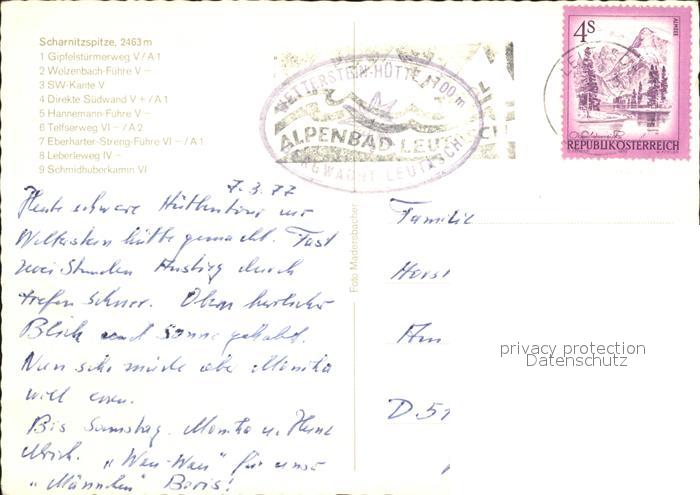 Scharnitzspitze, 2463 m
1 Gipfelstürmerweg V / A 1
2 Wolzenbach-Führe V –
3 SW-Kante V
4 Direkte Südwand V + / A 1
5 Hannemann-Führe V –
6 Telfserweg VI – / A 2
7 Eberharter-Streng-Führe VI – / A 1
8 Leberleweg IV –
9 Schmidhuberkamin VI
WETTERSTEIN-HÜTTE 1700 m
ALPENBAD LEUT
BERGWACHT LEUTASCH
4S
ALMSEE
REPUBLIK ÖSTERREICH
Foto Madersbacher
7.3.77
Heute schwere Hüttentour zur
hütte gemacht. Fast
zwei Stunden durch
tiefen Schnee. Oben herrlicher
Blick und Sonne gehabt.
Nun sehr müde aber Monika
will essen.
Bis Samstag. Monika u. Heinz
"Wau-Wau" für unser
"Männchen" Boris!
Familie
Horst
Am
D. 51
privacy protection
Datenschutz